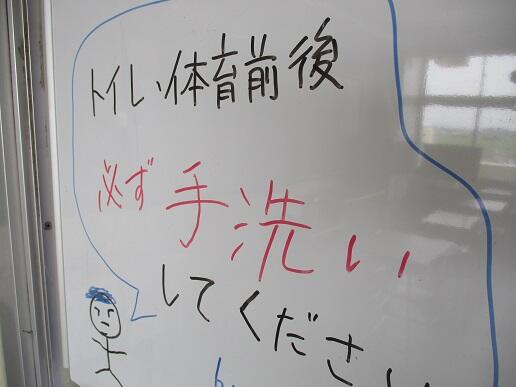 トイレい体育前後
必ず手洗い
してください